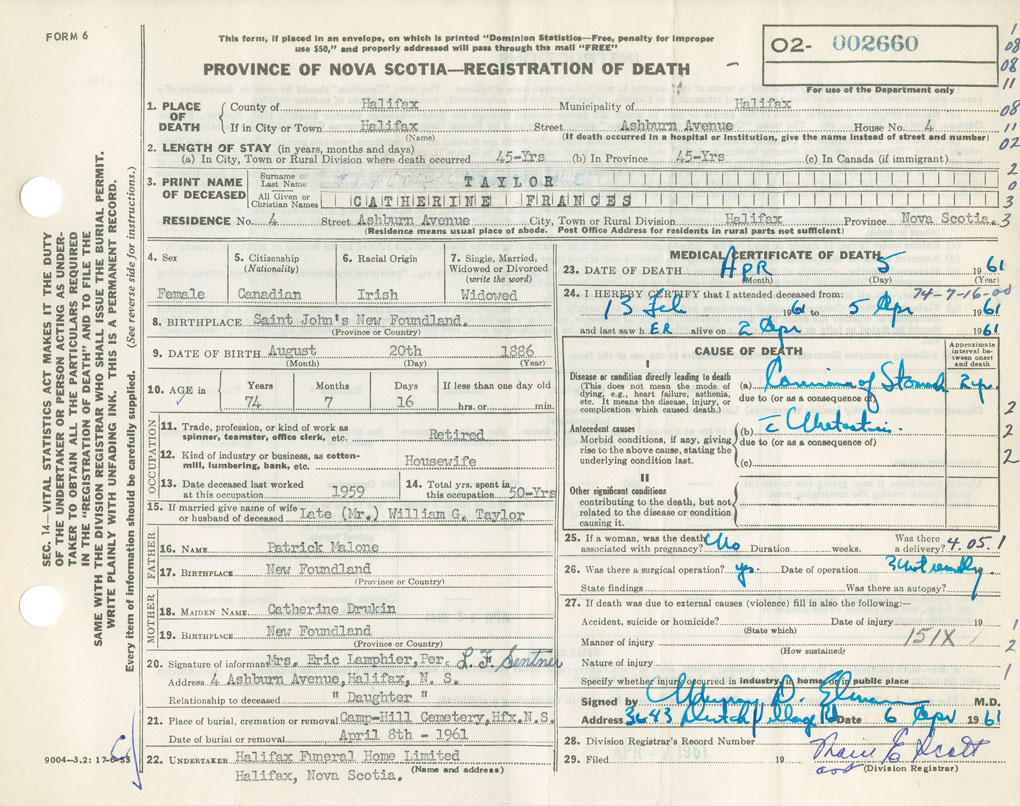 FORM 6
This form, if placed in an envelope, on which is printed "Dominion Statistics—Free, penalty for improper
use $50," and properly addressed will pass through the mail "FREE"
O2- 002660
For use of the Department only
PROVINCE OF NOVA SCOTIA—REGISTRATION OF DEATH
SEC. 14—VITAL STATISTICS ACT MAKES IT THE DUTY
OF THE UNDERTAKER OR PERSON ACTING AS UNDER-
TAKER TO OBTAIN ALL THE PARTICULARS REQUIRED
IN THE "REGISTRATION OF DEATH" AND TO FILE THE
SAME WITH THE DIVISION REGISTRAR WHO SHALL ISSUE THE BURIAL PERMIT.
WRITE PLAINLY WITH UNFADING INK. THIS IS A PERMANENT RECORD.
Every item of information should be carefully supplied. (See reverse side for instructions.)
1. PLACE OF DEATH
County of Halifax Municipality of Halifax
If in City or Town Halifax Street Ashburn Avenue House No. 4
(Name) (If death occurred in a hospital or institution, give the name instead of street and number)
2. LENGTH OF STAY (in years, months and days)
(a) In City, Town or Rural Division where death occurred 45-Yrs (b) In Province 45-Yrs (c) In Canada (if immigrant)
3. PRINT NAME OF DECEASED
Surname or Last Name TAYLOR
All Given or Christian Names CATHERINE FRANCES
RESIDENCE No. 4 Street Ashburn Avenue City, Town or Rural Division Halifax Province Nova Scotia
(Residence means usual place of abode. Post Office Address for residents in rural parts not sufficient)
4. Sex
Female
5. Citizenship (Nationality)
Canadian
6. Racial Origin
Irish
7. Single, Married, Widowed or Divorced (write the word)
Widowed
8. BIRTHPLACE Saint John's New Foundland.
(Province or Country)
9. DATE OF BIRTH August 20th 1886
(Month) (Day) (Year)
10. AGE in Years 74 Months 7 Days 16 If less than one day old hrs. or min.
OCCUPATION
11. Trade, profession, or kind of work as
spinner, teamster, office clerk, etc. Retired
12. Kind of industry or business, as cotton-
mill, lumbering, bank, etc. Housewife
13. Date deceased last worked at this occupation 1959
14. Total yrs. spent in this occupation 50-Yrs
15. If married give name of wife
or husband of deceased Late (Mr.) William G. Taylor
FATHER
16. NAME Patrick Malone
17. BIRTHPLACE New Foundland
(Province or Country)
MOTHER
18. MAIDEN NAME Catherine Drukin
19. BIRTHPLACE New Foundland
(Province or Country)
20. Signature of informant Mrs. Eric Lamphier, Per. L. F. Sentner
Address 4 Ashburn Avenue, Halifax, N. S.
Relationship to deceased " Daughter "
21. Place of burial, cremation or removal Camp-Hill Cemetery, Hfx. N.S.
Date of burial or removal April 8th - 1961
22. UNDERTAKER Halifax Funeral Home Limited
Halifax, Nova Scotia. (Name and address)
9004—3.2: 17-6-53
MEDICAL CERTIFICATE OF DEATH
23. DATE OF DEATH Apr 5 1961
(Month) (Day) (Year)
74-7-16-00
24. I HEREBY CERTIFY that I attended deceased from:
13 Feb 1961 to 5 Apr 1961
and last saw h ER alive on 2 Apr 1961
CAUSE OF DEATH
Approximate interval between onset and death
I
Disease or condition directly leading to death
(This does not mean the mode of
dying, e.g., heart failure, asthenia,
etc. It means the disease, injury, or
complication which caused death.)
(a) Carcinoma of Stomach 2 yr.
due to (or as a consequence of)
Antecedent causes
Morbid conditions, if any, giving
rise to the above cause, stating the
underlying condition last.
(b) c̄ Metastasis.
due to (or as a consequence of)
(c)
II
Other significant conditions
contributing to the death, but not
related to the disease or condition
causing it.
25. If a woman, was the death
associated with pregnancy? No Duration weeks. Was there a delivery? 4.05.1
26. Was there a surgical operation? yes. Date of operation
State findings Was there an autopsy?
27. If death was due to external causes (violence) fill in also the following:—
Accident, suicide or homicide? Date of injury 19
(State which)
Manner of injury 151X
(How sustained)
Nature of injury
Specify whether injury occurred in industry, in home or in public place
Signed by Murray D. M.D.
Address 3683 Dutch Village Rd Date 6 Apr 1961
28. Division Registrar's Record Number
29. Filed 19 E Scott
(Division Registrar)
1
08
08
11
08
11
02
2
0
3
3
2
2
2
1
1
2
1